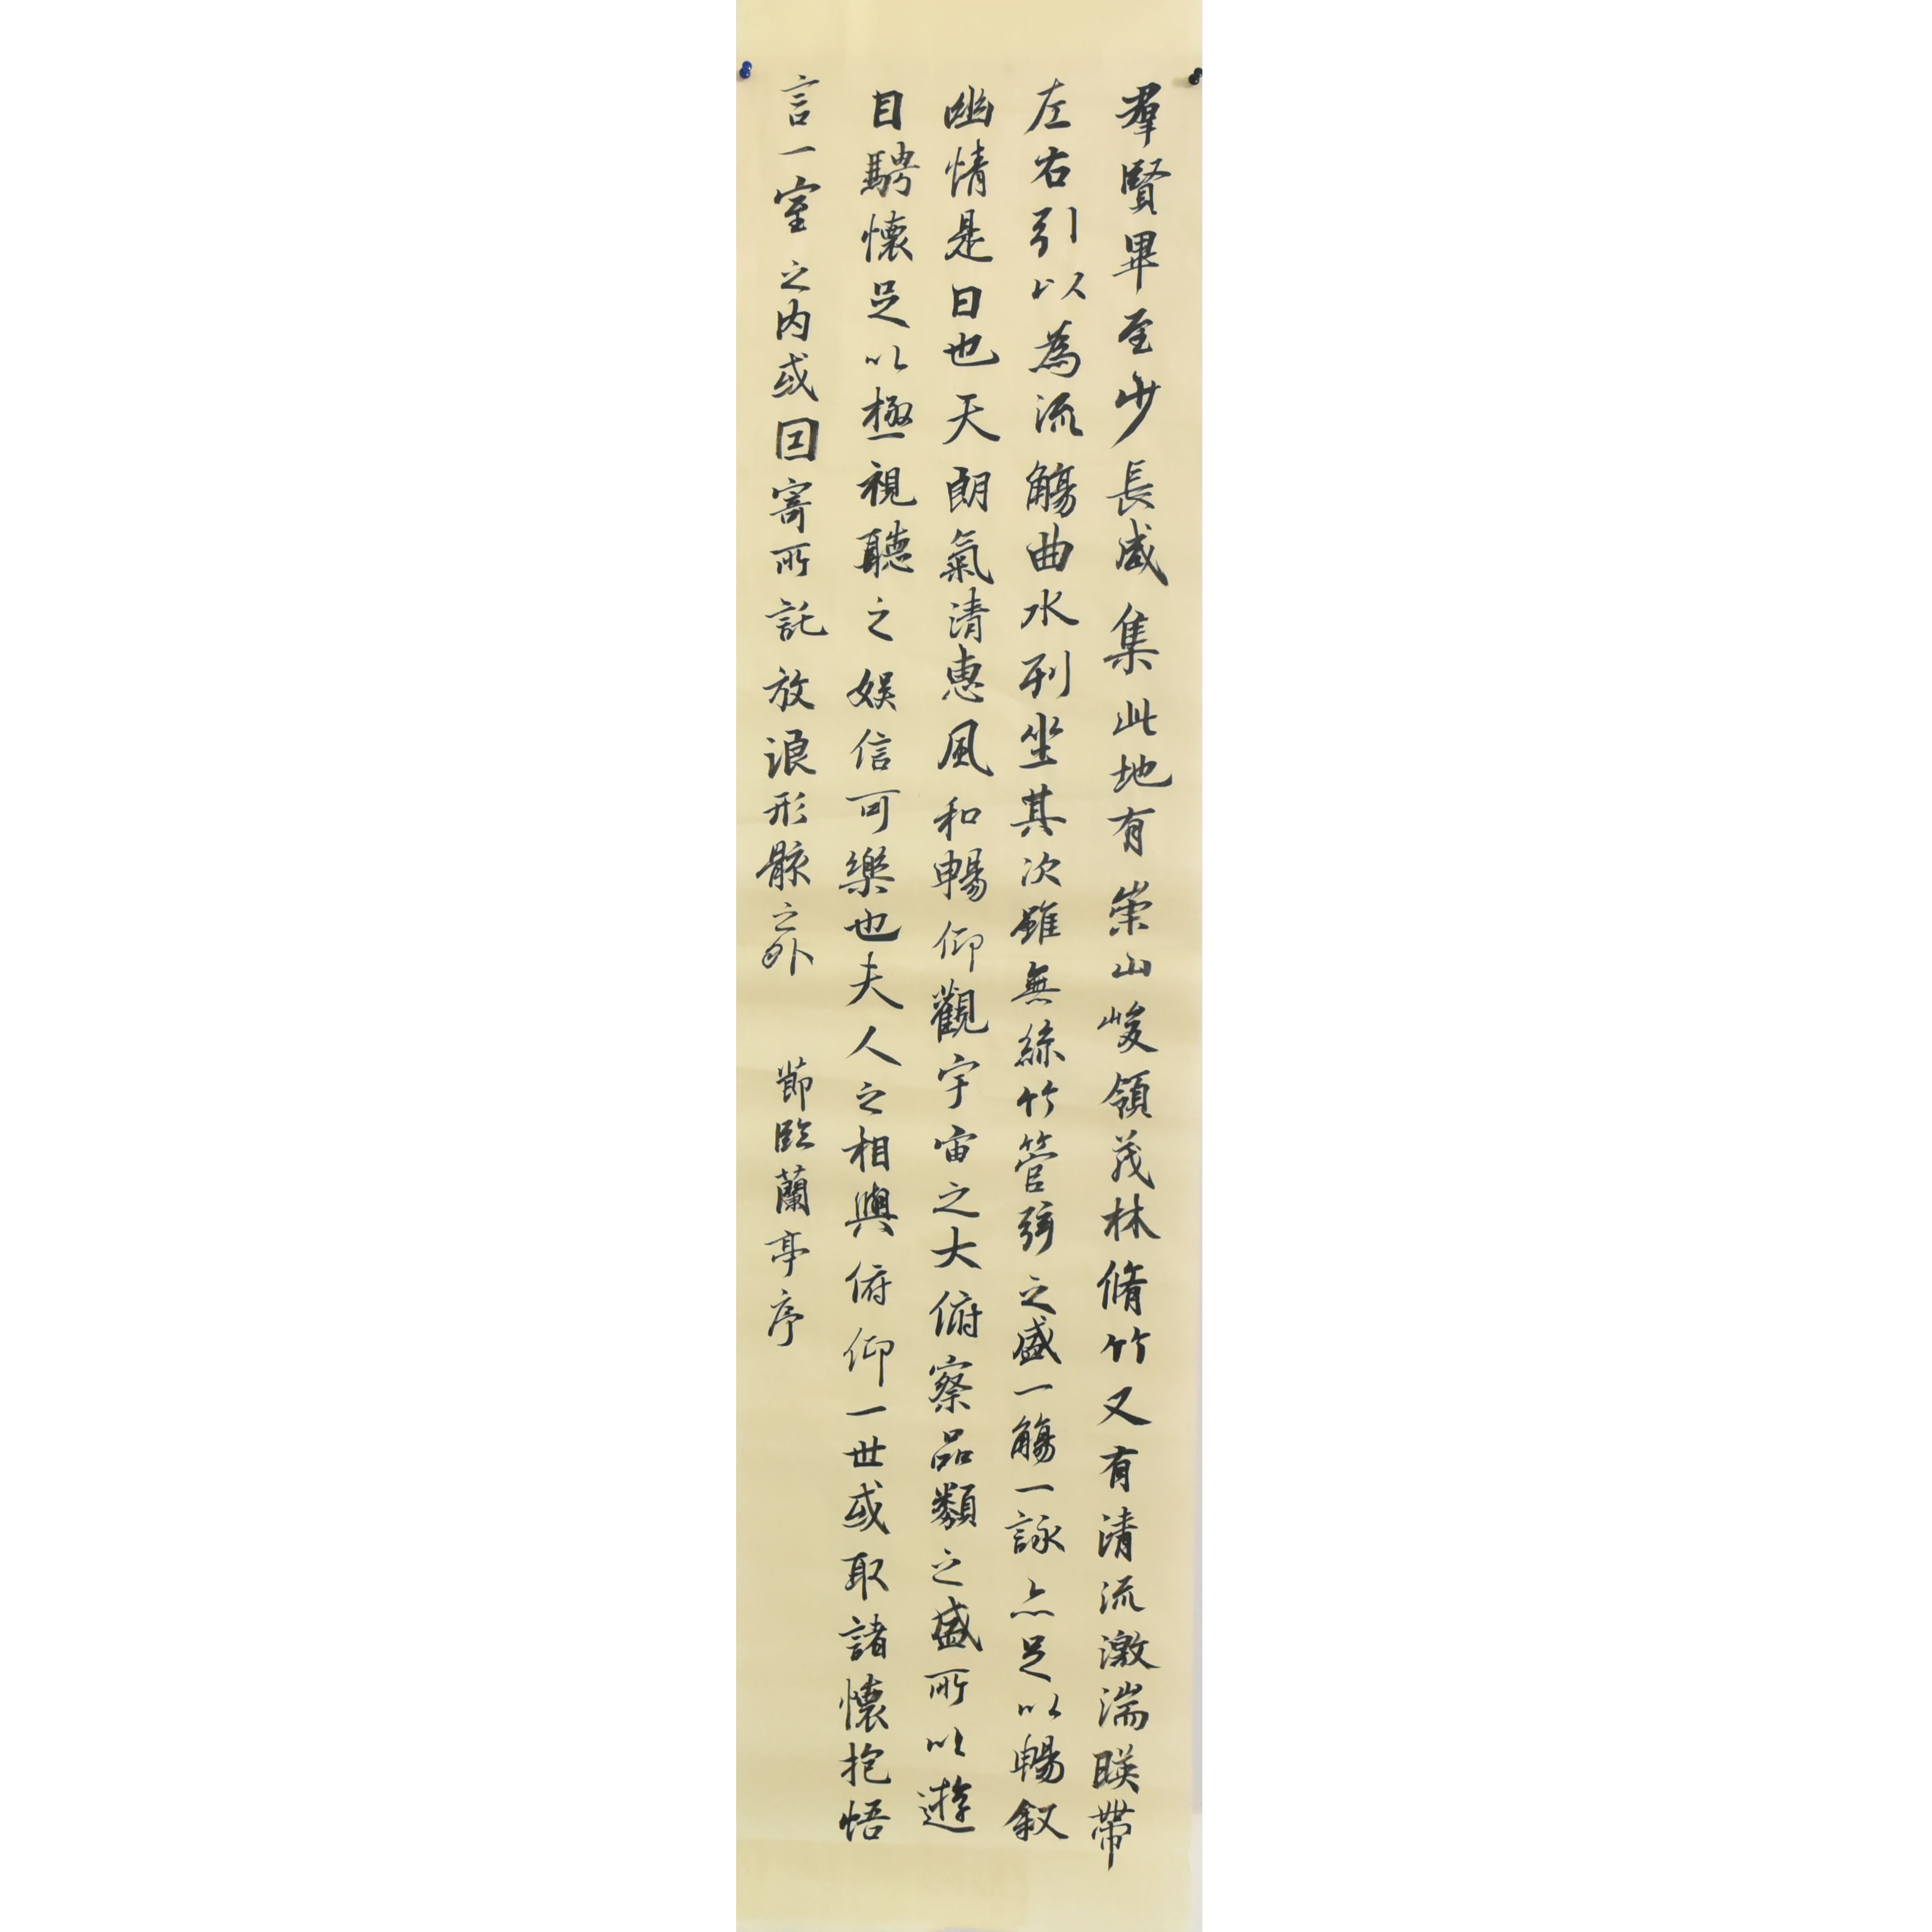 羣賢畢至少長咸集此地有崇山峻領茂林脩竹又有清流激湍暎帶
左右引以為流觴曲水列坐其次雖無絲竹管弦之盛一觴一詠亦足以暢叙
幽情是日也天朗氣清惠風和暢仰觀宇宙之大俯察品類之盛所以遊
目騁懷足以極視聽之娛信可樂也夫人之相與俯仰一世或取諸懷抱悟
言一室之内或因寄所託放浪形骸之外
節臨蘭亭序